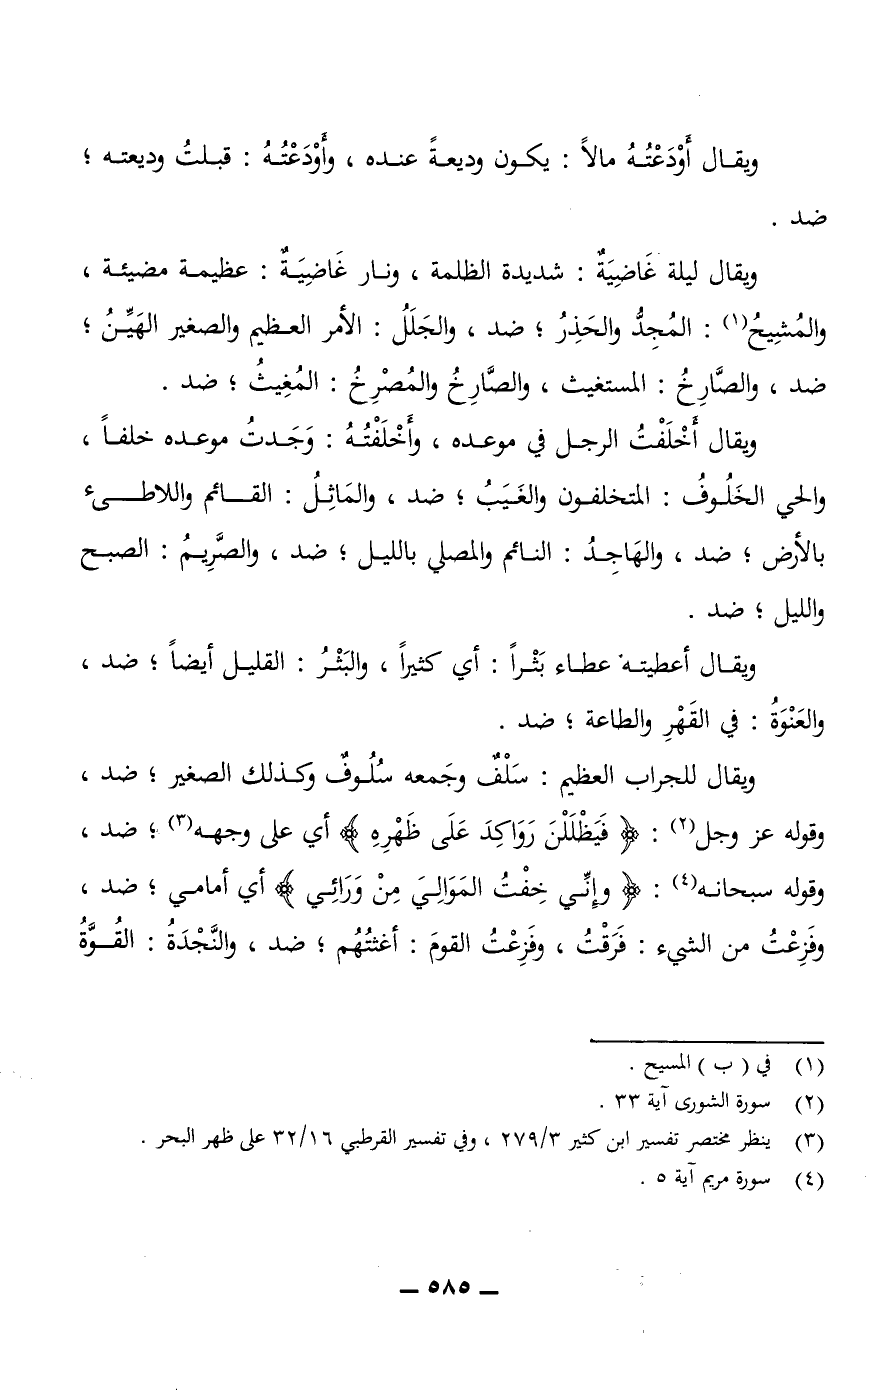 ويقال أَوْدَعْتُهُ مالاً : يكون وديعةً عنده ، وأَوْدَعْتُهُ : قبلتُ وديعته ؛
ضد .
ويقال ليلة غَاضِيَةٌ : شديدة الظلمة ، ونار غَاضِيَةٌ : عظيمة مضيئة ،
والمُشِيحُ(١) : المُجِدُّ والحَذِرُ ؛ ضد ، والجَلَلُ : الأمر العظيم والصغير الهَيِّنُ ؛
ضد ، والصَّارِخُ : المستغيث ، والصَّارِخُ والمُصْرِخُ : المُغِيثُ ؛ ضد .
ويقال أَخْلَفْتُ الرجل في موعده ، وأَخْلَفْتُهُ : وَجَدتُ موعده خلفاً ،
والحي الخَلُوفُ : المتخلفون والغَيَبُ ؛ ضد ، والمَاثِلُ : القائم واللاطىء
بالأرض ؛ ضد ، والهَاجِدُ : النائم والمصلي بالليل ؛ ضد ، والصَّرِيمُ : الصبح
والليل ؛ ضد .
ويقال أعطيته عطاء بَثْراً : أي كثيراً ، والبَثْرُ : القليل أيضاً ؛ ضد ،
والعَنْوَةُ : في القَهْرِ والطاعة ؛ ضد .
ويقال للجراب العظيم : سَلْفٌ وجَمعه سُلُوفٌ وكذلك الصغير ؛ ضد ،
وقوله عز وجل(٢) : ﴿ فَيَظْلَلْنَ رَوَاكِدَ عَلَى ظَهْرِهِ ﴾ أي على وجهه(٣) ؛ ضد ،
وقوله سبحانه(٤) : ﴿ وإِنِّي خِفْتُ المَوَالِيَ مِنْ وَرَائِي ﴾ أي أمامي ؛ ضد ،
وفَزِعْتُ من الشيء : فَرَقْتُ ، وفَزِعْتُ القومَ : أغثتُهُم ؛ ضد ، والنَّجْدَةُ : القُوَّةُ
(١) في ( ب ) المسيح .
(٢) سورة الشورى آية ٣٣ .
(٣) ينظر مختصر تفسير ابن كثير ٢٧٩/٣ ، وفي تفسير القرطبي ٣٢/١٦ على ظهر البحر .
(٤) سورة مريم آية ٥ .
ــ ٥٨٥ ــ